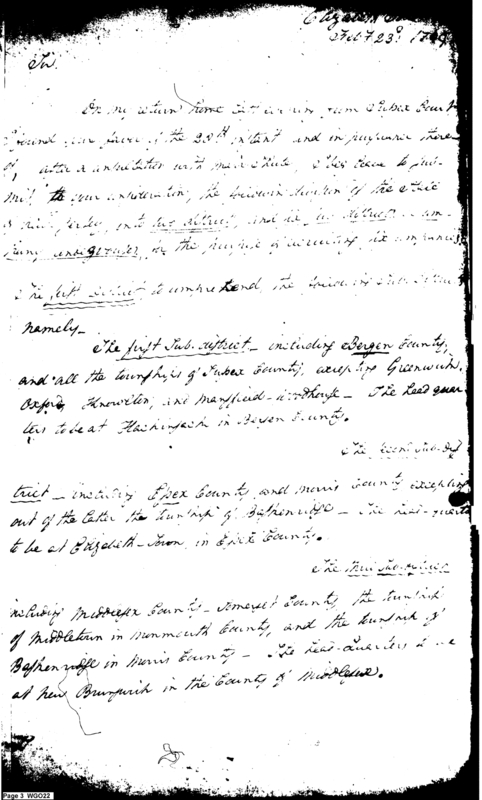 Elizabeth
Feb.y 23d 1799
Sir.
On my return home last evening from Sussex Court
I found your favor of the 20th instant and in pursuance there
of, after a consultation with, I beg leave to sub-
mit to your consideration, the following division of the State
into two districts, and
for the purpose of recruiting six companies
The first District to comprehend the following Sub-Districts
namely—
The first Sub-district — including Bergen County,
and all the townships of Sussex County, excepting Greenwich,
Oxford, Knowlton, and Mansfield-Woodhouse — The head quar
ters to be at Hackinsack in Bergen County.
The second Sub-Dis
trict — including Essex County and Morris County excepting
out of the latter the township of Baskenridge — The head-quarters
to be at Elizabeth-Town, in Essex County.
The third Sub-district
including Middlesex County — Somerset County, the township
of Middletown in Monmouth County, and the township of
Baskenridge in Morris County — The head-quarters to be
at New Brunswick in the County of Middlesex.
Page 3 WGO22